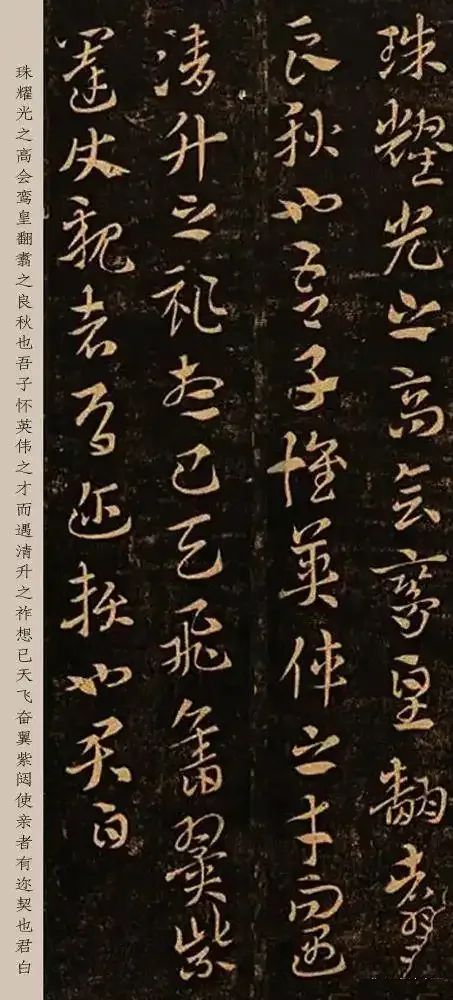 珠耀光之高會鸞皇翻翥之
良秋也吾子懷英偉之才而遇
清升之祚想已天飛奮翼紫
闥使親者有邇契也君白
珠耀光之高会鸾皇翻翥之良秋也吾子怀英伟之才而遇清升之祚想已天飞奋翼紫闼使亲者有迩契也君白